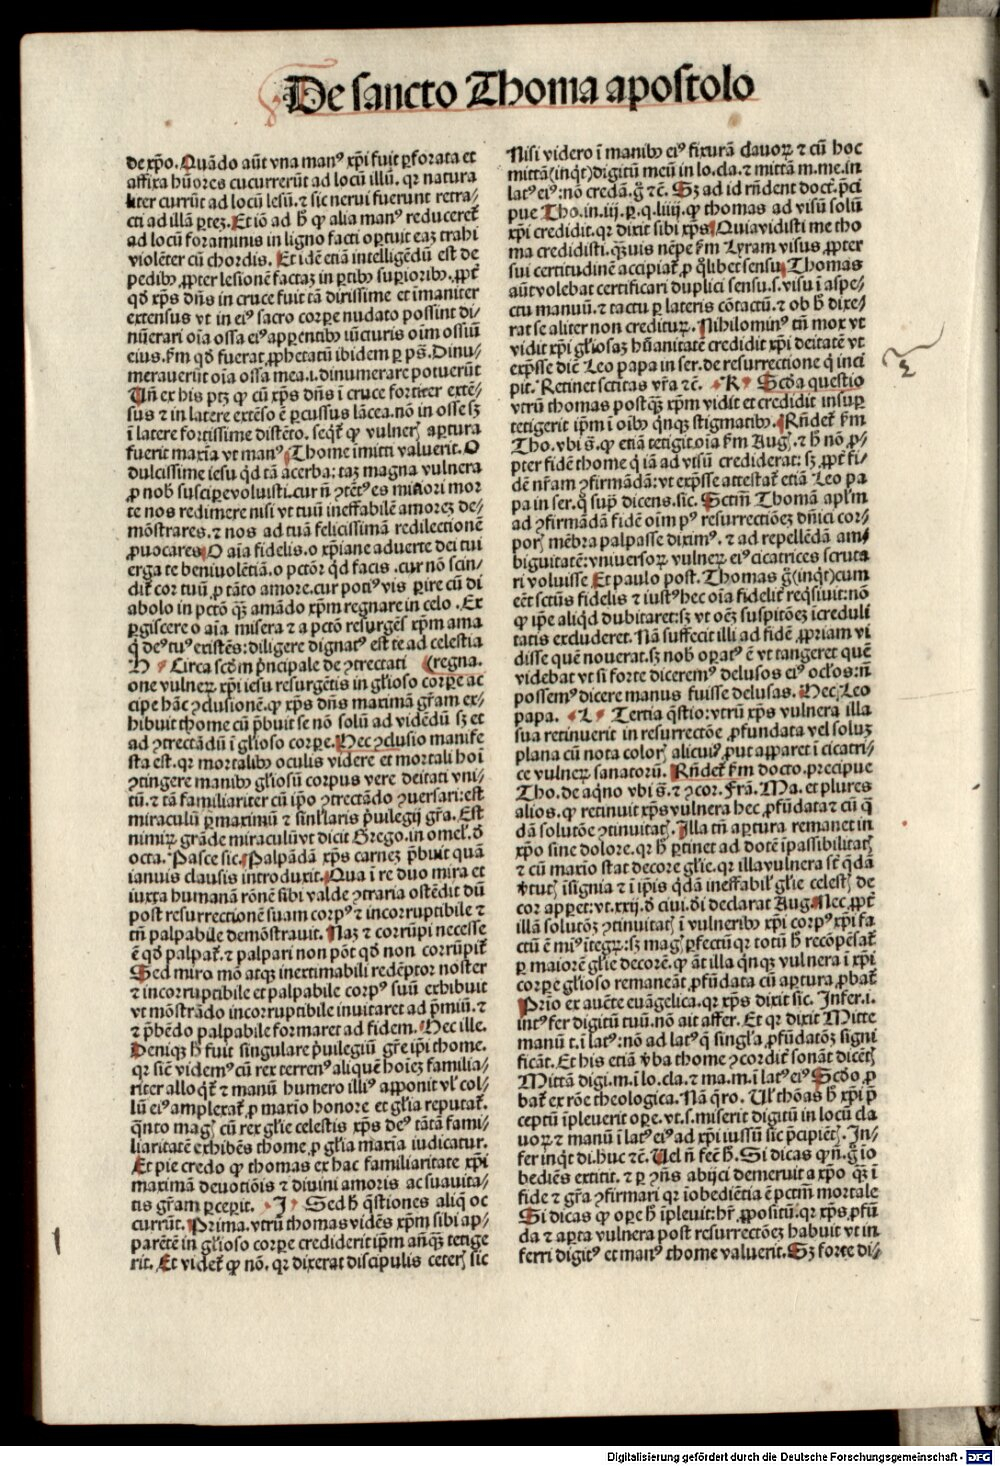 De sancto Thoma apostolo
de xp̃o. Quãdo aũt vna manꝰ xp̃i fuit ꝑforata et
affixa hũores cucurrerũt ad locũ illũ. qr natura
liter currũt ad locũ lesũ. ⁊ sic nerui fuerunt retra-
cti ad illã ꝑtez. Et iõ ad h̃ ꝙ alia manꝰ reduceret̃
ad locũ foraminis in ligno facti oꝑtuit eaz trahi
violẽter cũ chordis. Et idẽ etiã intelligẽdũ est de
pedibꝫ, ꝓpter lesionẽ factaz in ꝑtibꝫ suꝑioribꝫ. ꝓpt̃
qđ xp̃s dñs in cruce fuit tã dirissime et ĩmaniter
extensus vt in eiꝰ sacro corꝑe nudato possint di-
nũerari oĩa ossa eiꝰ apparentibꝫ iũcturis oĩm ossiũ
eius. ẜm qđ fuerat ꝓphetatũ ibidem ꝑ ps̃. Dinu-
merauerũt oĩa ossa mea .i. dinumerare potuerũt
Uñ ex his ptꝫ ꝙ cũ xp̃s dñs ĩ cruce fortiter extẽ-
sus ⁊ in latere extẽso ẽ ꝑcussus lãcea. nõ in osse sꝫ
ĩ latere fortissime distẽto. seqt̃ ꝙ vulneꝝ aꝑtura
fuerit maxĩa vt manꝰ Thome imitti valuerit. O
dulcissime iesu qđ tã acerba: taz magna vulnera
ꝓ nob̃ susciꝑe voluisti. cur ñ ꝯtẽtꝰ es miñori mor
te nos redimere nisi vt tuũ ineffabilẽ amorez de-
mõstrares. ⁊ nos ad tuã felicissimã redilectionẽ
ꝓuocares. O aĩa fidelis. o xp̃iane aduerte dei tui
erga te beniuolẽtiã. o pctõr qđ facis. cur nõ scin-
dit̃ cor tuũ ꝓ tãto amore. cur potiꝰ vis ꝑire cũ di
abolo in pctõ qꝫ amãdo xp̃m regnare in celo. Ex
ꝑgiscere o aĩa misera ⁊ a pctõ resurgẽs xp̃m ama
q̃ deꝰ tuꝰ existẽs: diligere dignatꝰ est te ad celestia
H Circa scđm p̃ncipale de ꝯtrectati (regna.
one vulneꝝ xp̃i iesu resurgẽtis in gl̃ioso corꝑe ac
cipe hãc ꝯclusionẽ. ꝙ xp̃s dñs maximã gr̃am ex-
hibuit thome cũ p̃buit se nõ solũ ad vidẽdũ sꝫ et
ad ꝯtrectãdũ ĩ gl̃ioso corꝑe. Hec ꝯclusio manife
sta est. qr mortalibꝫ oculis videre et mortali hoĩ
ꝯtingere manibꝫ gl̃iosũ corpus vere deitati vni-
tũ. ⁊ tã familiariter cũ ip̃o ꝯtrectãdo ꝯuersari: est
miraculũ ꝑmaximũ ⁊ singl̃aris p̃uilegij gr̃a. Est
nimirꝝ grãde miraculũ vt dicit Grego. in omel̃. đ
octa. Pasce sic. Palpãdã xp̃s carnez p̃buit quã
ianuis clausis introduxit. Qua ĩ re duo mira et
iuxta humanã rõnẽ sibi valde ꝯtraria ostẽdit dũ
post resurrectionẽ suam corpꝰ ⁊ incorruptibile ⁊
tñ palpabile demõstrauit. Naꝫ ⁊ corrũpi necesse
ẽ qđ palpat̃. ⁊ palpari non põt qđ non corrũpit̃
Sed miro mõ atqꝫ inextimabili redẽptor noster
⁊ incorruptibile et palpabile corpꝰ suũ exhibuit
vt mõstrãdo incorruptibile inuitaret ad p̃miũ. ⁊
⁊ p̃bẽdo palpabile formaret ad fidem. Hec ille.
Deniqꝫ h̃ fuit singulare p̃uilegiũ gr̃e ip̃i thome.
qr sic̃ videmꝰ cũ rex terrenꝰ aliquẽ hoĩez familia-
riter alloqt̃ ⁊ manũ humero illiꝰ apponit vl̃ col-
lũ eiꝰ amplexat̃. ꝓ maxĩo honore et gl̃ia reputat̃.
q̃nto magꝭ cũ rex glĩe celestis xp̃s deꝰ tãtã fami-
liaritatẽ exhibẽs thome, ꝓ gl̃ia maxĩa iudicatur.
Et pie credo ꝙ thomas ex hac familiaritate xp̃i
maximã deuotiõis ⁊ diuini amoris ac suauita-
tis gr̃am ꝑcepit. I Sed h̃ q̃stiones aliq̃ oc
currũt. Prima. vtrũ thomas vidẽs xp̃m sibi ap-
parẽtẽ in gl̃ioso corꝑe crediderit ip̃m añqꝫ tetige
rit. Et videt̃ ꝙ nõ. qr dixerat discipulis ceteꝝ sic
Nisi videro ĩ manibꝫ eiꝰ fixurã clauoꝝ ⁊ cũ hoc
mittã (inq̃t) digitũ meũ in lo. cla. ⁊ mittã m. me. in
latꝰ eiꝰ: nõ credã. g̃ ⁊c̃. Sꝫ ad id rñdent doct̃. p̃ci
pue Tho. in .iij. ꝑ. q. liiij. ꝙ thomas ad visũ solũ
xp̃i credidit. qr dixit sibi xp̃s Quia vidisti me tho
ma credidisti. qꝫuis nẽpe ẜm Lyram visus, ꝓpter
sui certitudinẽ accipiat̃ ꝓ q̃libet sensu. Thomas
aũt volebat certificari duplici sensu. s. visu ĩ aspe-
ctu manuũ. ⁊ tactu ꝑ lateris cõtactũ. ⁊ ob h̃ dixe-
rat se aliter non crediturꝝ. Nihilominꝰ tñ mox vt
vidit xp̃i gl̃iosaz hũanitatẽ credidit xp̃i deitatẽ vt
exp̃sse dic̃ Leo papa in ser. de resurrectione q̃ inci
pit. Retinet sctĩtas vr̃a ⁊c̃. K Scđa questio
vtrũ thomas postqꝫ xp̃m vidit et credidit insuꝑ
tetigerit ip̃m ĩ oĩbꝫ q̃nqꝫ stigmatibꝫ. Rñdet̃ ẜm
Tho. vbi s̃. ꝙ etiã tetigit oĩa ẜm Augꝭ. ⁊ h̃ nõ ꝓ-
pter fidẽ thome q̃ iã ad visũ crediderat: sꝫ ꝓpt̃ fi-
dẽ nr̃am ꝯfirmãdã: vt exp̃sse attestat̃ etiã Leo pa
pa in ser. q̃ sup̃ dicens. sic. Sctm̃ Thomã apl̃m
ad ꝯfirmãdã fidẽ oĩm pꝰ resurrectiõez dñici cor-
porꝭ mẽbra palpasse diximꝰ. ⁊ ad repellẽdã am-
biguitatẽ: vniuersoꝝ vulneꝝ eiꝰ cicatrices scruta
ri voluisse Et paulo post. Thomas g̃ (inq̃t) cum
eẽt sctũs fidelis ⁊ iustꝰ hec oĩa fidelit̃ req̃siuit: nõ
ꝙ ip̃e aliqđ dubitaret: sꝫ vt oẽꝫ suspitõeꝫ ĩcreduli
tatis excluderet. Nã suffecit illi ad fidẽ, ꝓpriam vi
disse quẽ nouerat. sꝫ nob̃ oꝑatꝰ ẽ vt tangeret quẽ
videbat vt si forte diceremꝰ delusos eiꝰ ocl̃os: ñ
possemꝰ dicere manus fuisse delusas. Hec Leo
papa. L Tertia q̃stio: vtrũ xp̃s vulnera illa
sua retinuerit in resurrectõe ꝓfundata vel soluꝫ
plana cũ nota colorꝭ alicuiꝰ, ꝓut apparet ĩ cicatri-
ce vulneꝝ sanatorũ. Rñdet̃ ẜm docto. precipue
Tho. de aq̃no vbi s̃. ⁊ ꝯcor. Frã. Ma. et plures
alios. ꝙ retinuit xp̃s vulnera hec ꝓfũdata ⁊ cũ q̃
dã solutõe ꝯtinuitatꝭ. Illa tñ aꝑtura remanet in
xp̃o sine dolore. qr h̃ ꝑtinet ad dotẽ ĩpassibilitatꝭ
⁊ cũ maxĩo stat decore glĩe. qr illa vulnera sc̃t q̃dã
v̓tutꝭ ĩsignia ⁊ ĩ ip̃is q̃dã ineffabil̃ glĩe celestꝭ de
cor apꝑet: vt .xxij. đ ciui. đi declarat Aug. Nec ꝓpt̃
illã solutõꝫ ꝯtinuitatꝭ ĩ vulneribꝫ xp̃i corpꝰ xp̃i fa
ctũ ẽ miꝰ ĩtegꝝ: sꝫ magꝭ ꝑfectũ qr totũ h̃ recõpẽsat̃
ꝑ maiorẽ glĩe decorẽ. ꝙ añt illa q̃nqꝫ vulnera ĩ xp̃i
corꝑe glioso remaneãt ꝓfũdata cũ aꝑtura ꝓbat̃
Prĩo ex aucẽte euãgelica. qr xp̃s dixit sic̃. Infer .i.
intꝰ fer digitũ tuũ. nõ ait affer. Et qr dixit Mitte
manũ t. ĩ latꝰ: nõ ad latꝰ q̃ singl̃a ꝓfũdatõꝫ signi
ficãt. Et his etiã v̓ba thome ꝯcordit̃ sonãt dicẽtꝭ
Mittã digi. m. ĩ lo. cla. ⁊ ma. m. ĩ latꝰ eiꝰ Scđo ꝓ
bat̃ ex rõe theologica. Nã q̃ro. Ul̃ thõas h̃ xp̃i p̃
ceptũ ĩpleuerit oꝑe. vt .s. miserit digitũ in locũ cla
uoꝝ ⁊ manũ ĩ latꝰ eiꝰ ad xp̃i iussũ sic p̃cipiẽtꝭ. In-
fer inq̃t di. huc ⁊c̃. Uel ñ fec̃ h̃. Si dicas ꝙ ñ. g̃ ĩo
bediẽs extitit. ⁊ ꝑ ꝯñs abijci demeruit a xp̃o qꝫ ĩ
fide ⁊ gr̃a ꝯfirmari qr iobediẽtia ẽ pctm̃ mortale
Si dicas ꝙ oꝑe h̃ ĩpleuit: hr̃ ꝓpositũ. qr xp̃s ꝓfũ
da ⁊ aꝑta vulnera post resurrectõez habuit vt in
ferri digitꝰ et manꝰ thome valuerit. Sꝫ forte di-
Digitalisierung gefördert durch die Deutsche Forschungsgemeinschaft - DFG